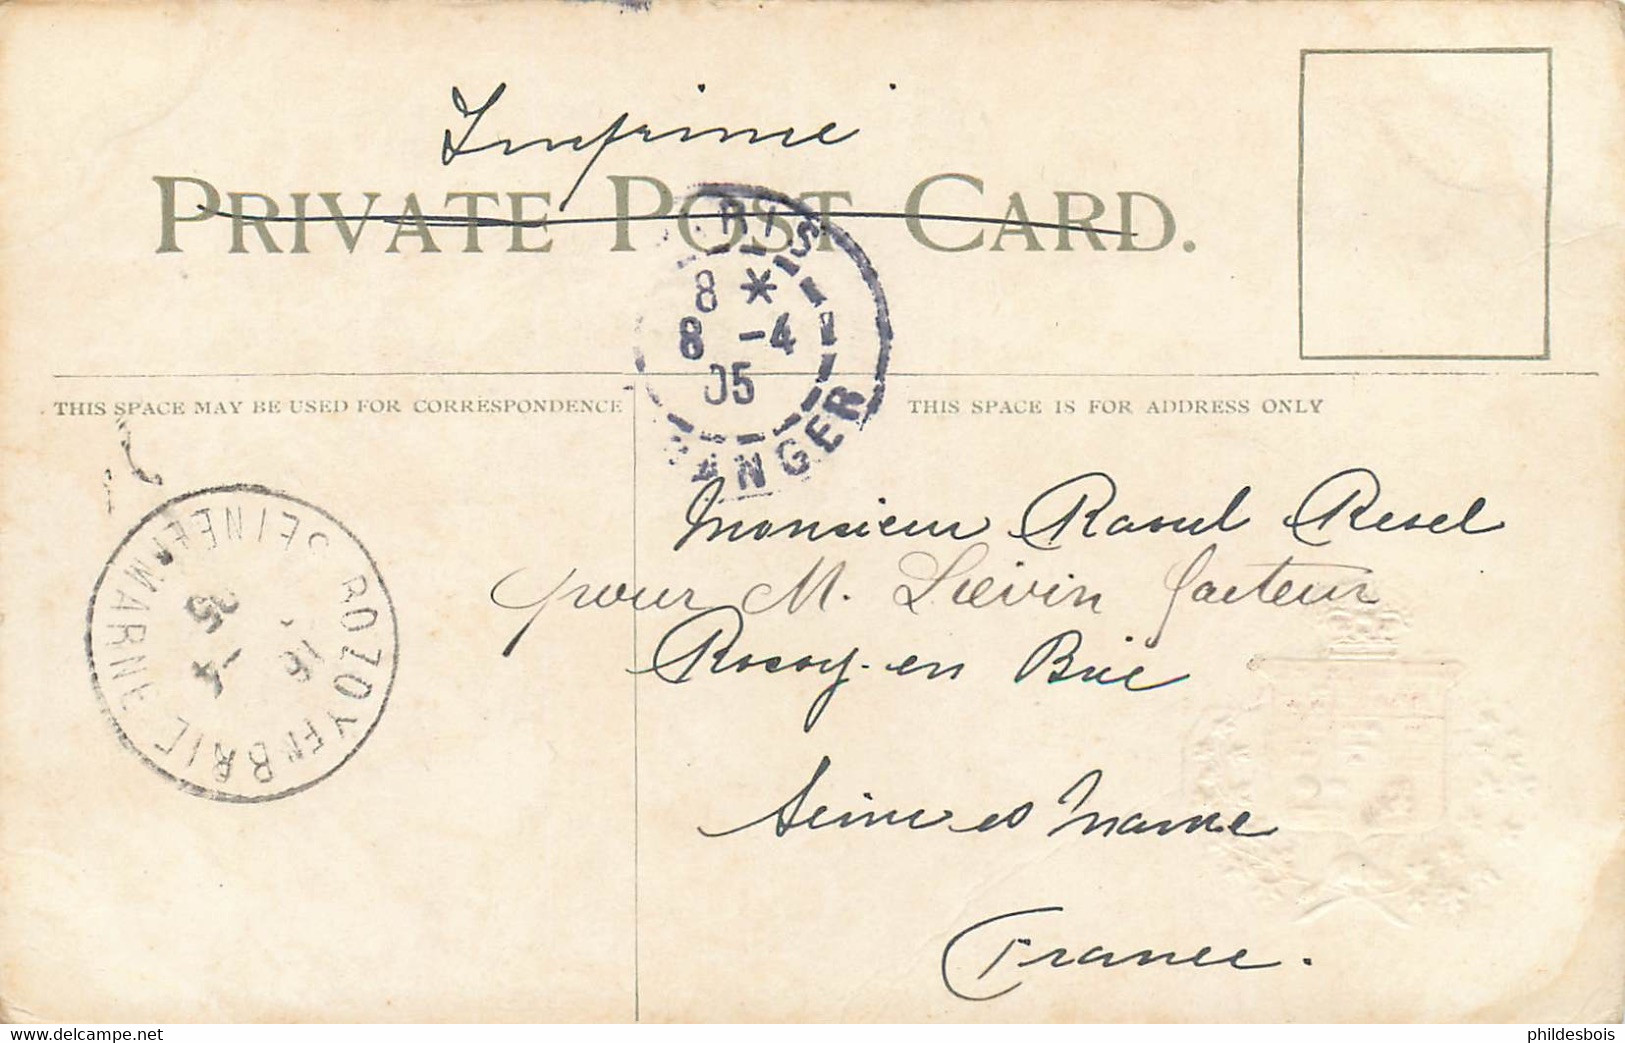 Imprimé
PRIVATE POST CARD.
RIS
8 *
8 -4
05
ANGER
THIS SPACE MAY BE USED FOR CORRESPONDENCE
THIS SPACE IS FOR ADDRESS ONLY
Monsieur Raoul Resel
pour M. Lievin facteur
Rosoy-en Brie
Seine et Marne
France.
ROZOY EN BRIE
SEINE ET MARNE
16
-4
05
https://www.delcampe.net
phildesbois